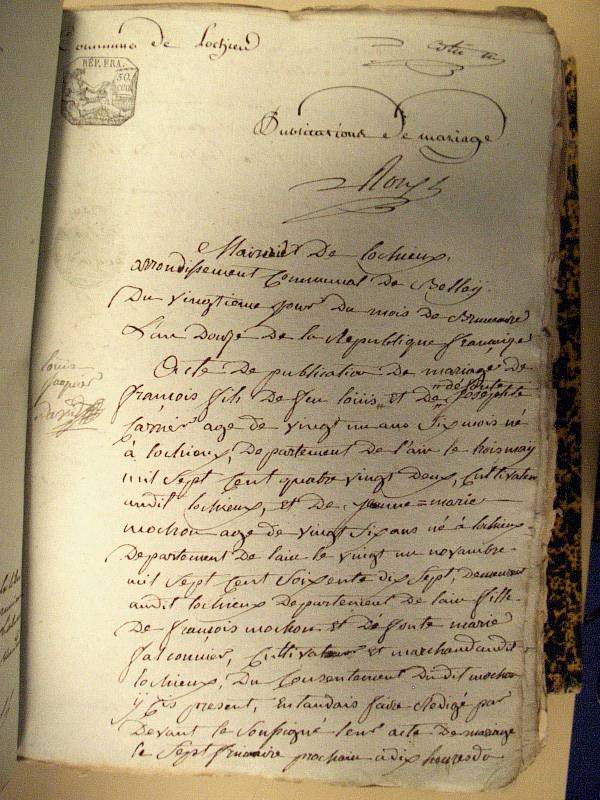 Commune de Lochieu
Cotte
REP. FRA.
50
cen
Publications de mariage
Mairie De lochieux,
arrondissement Communal de Belley.
Du vingtieme jour Du mois de Brumaire
L'an Douze De la Republique françaize
Acte De publication De mariage De
françois fils de feu louis et De Josephte
age de vingt un ans Six mois né
à lochieux, Departement de l'ain le trois may
mil Sept Cent quatre vingt Deux, Cultivateur
audit lochieux, et De jeanne=marie
mochon age de vingt Six ans né à lochieux
Departement de lain le vingt un novembre
mil Sept Cent Soixente dix Sept, demeurant
audit lochieux Departement de lain fille
De françois mochon et Défunte marie
falconnier, Cultivateur et marchand audit
lochieux, Du Consentement Dudit mochon
present, Entandais faire Redigé par
Devant le Soussigné leur acte De mariage
le Sept frimaire prochain a dix heures du
louis
jacques
David